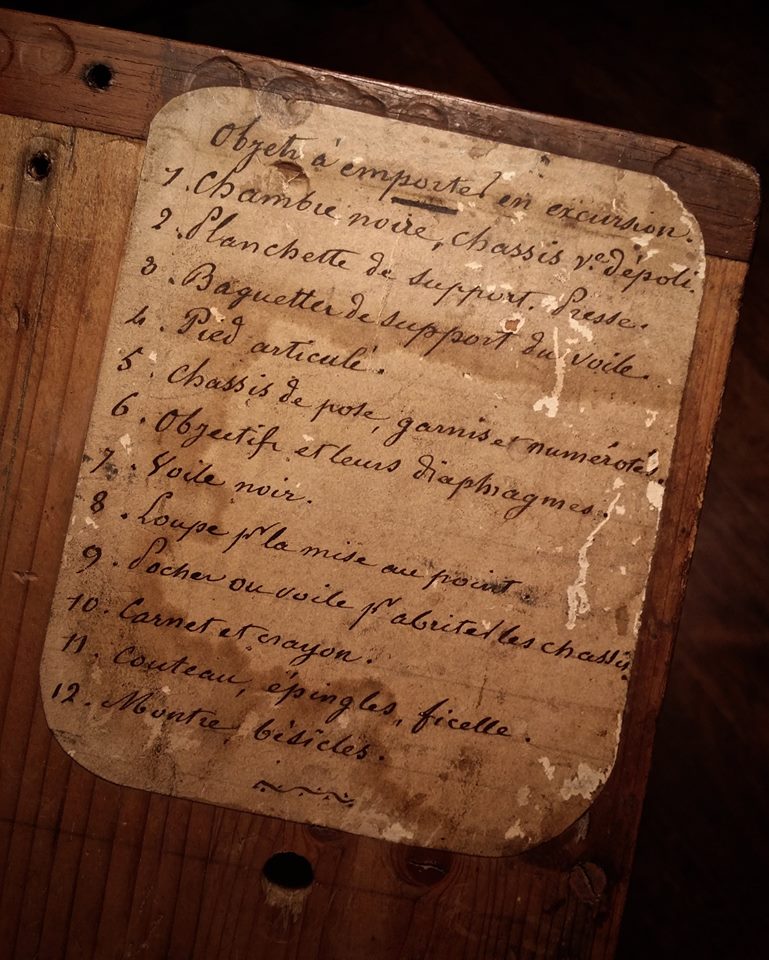 Objets à emporter en excursion.
1. Chambre noire, chassis v.e dépoli.
2. Planchette de support. Presse.
3. Baguettes de support du voile.
4. Pied articulé.
5. Chassis de pose, garnis et numérotés.
6. Objectifs et leurs diaphragmes.
7. Voile noir.
8. Loupe pr la mise au point.
9. Poches ou voile pr abriter les chassis.
10. Carnet et crayon.
11. Couteau, épingles, ficelle.
12. Montre, bésicles.